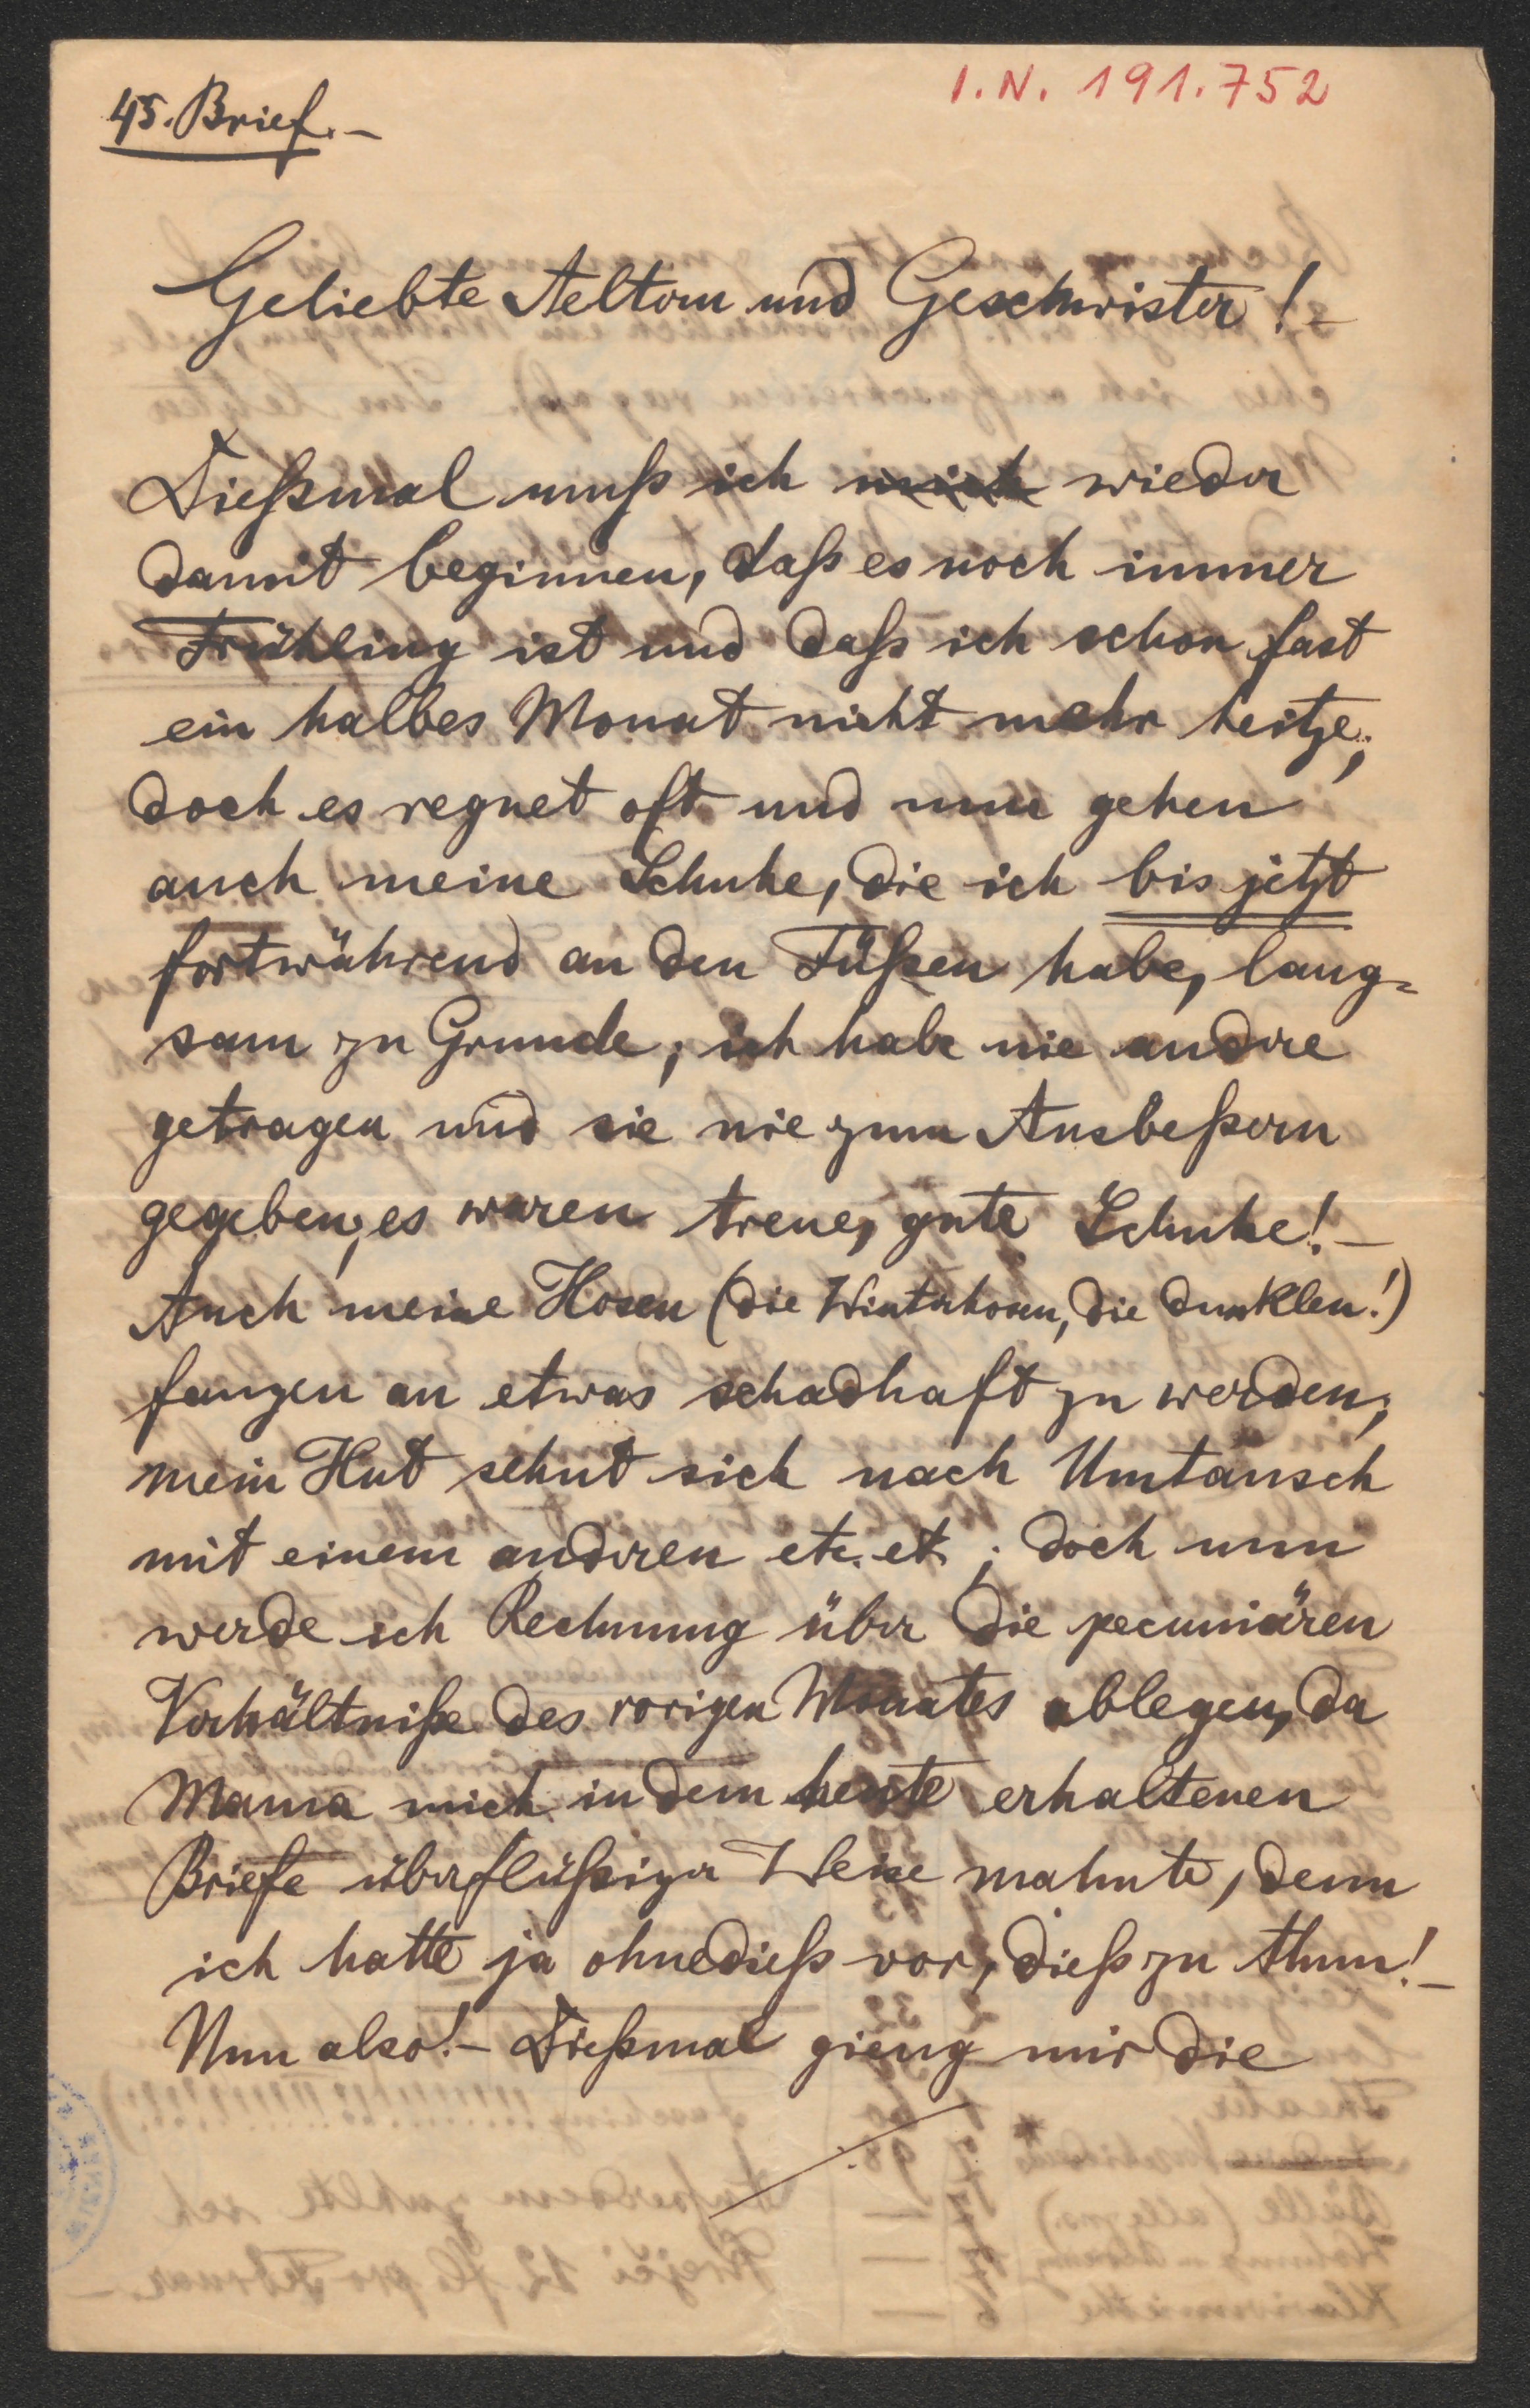 45. Brief.–
I.N. 191.752
Geliebte Aeltern und Geschwister!–
Dießmal muß ich mich wieder
damit beginnen, daß es noch immer
Frühling ist und daß ich schon fast
ein halbes Monat nicht mehr heitze;
doch es regnet oft und nun gehen
auch meine Schuhe, die ich bis jetzt
fortwährend an den Füßen habe, lang=
sam zu Grunde; ich habe nie andere
getragen und sie nie zum Ausbeßern
gegeben, es waren treue, gute Schuhe!–
Auch meine Hosen (die Winterhosen, die dunklen!)
fangen an etwas schadhaft zu werden;
mein Hut sehnt sich nach Umtausch
mit einem anderen etc. etc.; doch nun
werde ich Rechnung über die pecuniären
Verhältniße des vorigen Monates ablegen, da
Mama mich in dem heute erhaltenen
Briefe überflüßiger Weise mahnte, denn
ich hatte ja ohnedieß vor, dieß zu thun!–
Nun also!– Dießmal gieng mir die